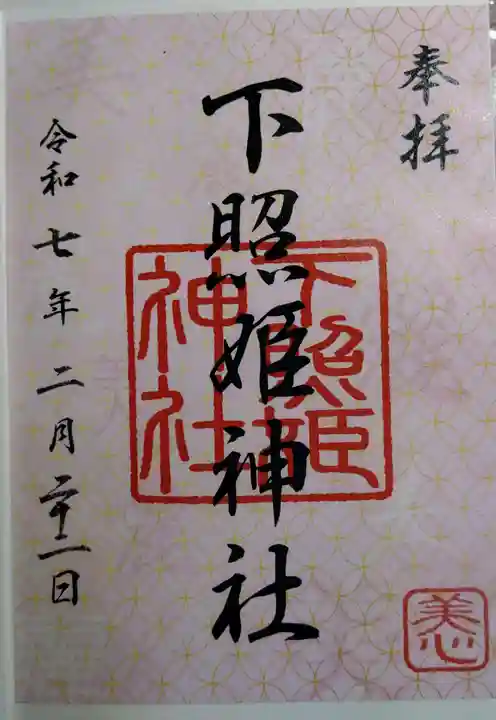 奉拝
下照姫神社
令和七年 二月二十二日
下照姫
神社
美心